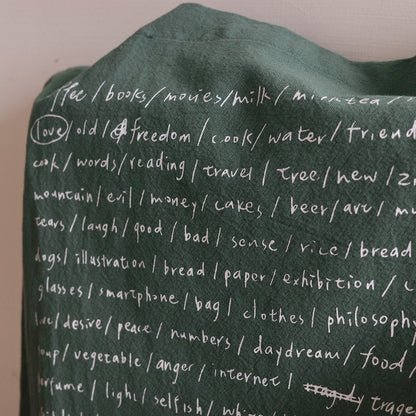 / books / movies / milk / milk tea /
love / old / freedom / cook / water / friend
cook / words / reading / travel / tree / new /
mountain / evil / money / cakes / beer / art /
tears / laugh / good / bad / sense / rice / bread
dogs / illustration / bread / paper / exhibition /
glasses / smartphone / bag / clothes / philosophy
/ desire / peace / numbers / daydream / food /
soup / vegetable / anger / internet /
perfume / light / selfish /